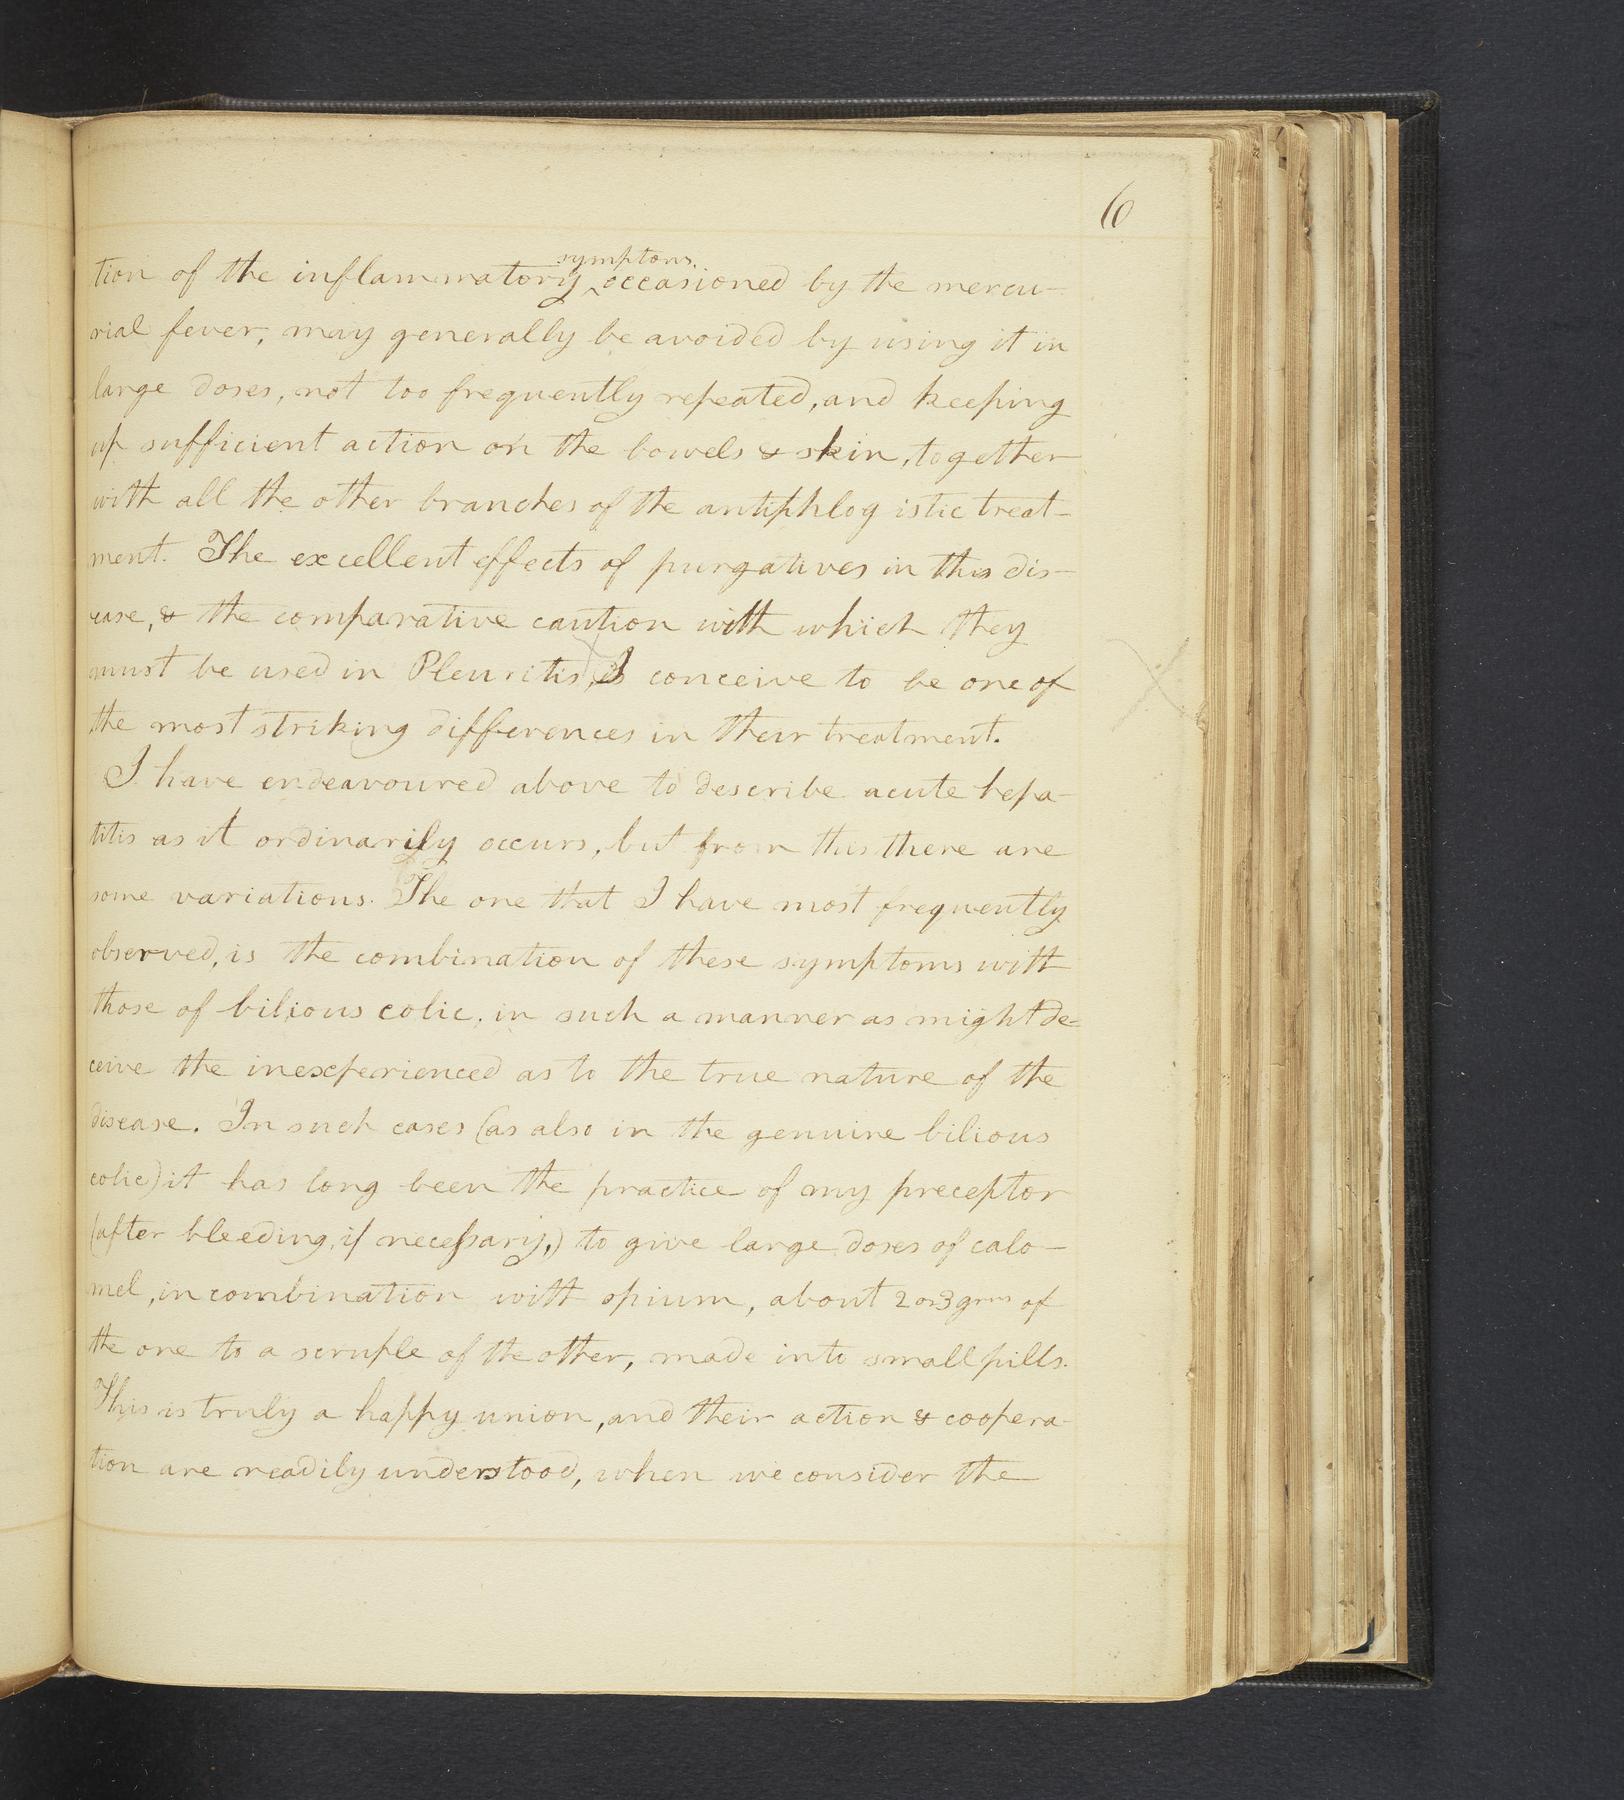 6
tion of the inflammatory ^symptoms occasioned by the mercu-
rial fever, may generally be avoided by using it in
large doses, not too frequently repeated, and keeping
up sufficient action on the bowels & skin, together
with all the other branches of the antiphlogistic treat-
ment. The excellent effects of purgatives in this dis-
ease, & the comparative caution with which they
must be used in Pleuritis, I conceive to be one of
the most striking differences in their treatment.
I have endeavoured above to describe acute hepa-
titis as it ordinarily occurs, but from this there are
some variations. The one that I have most frequently
observed, is the combination of these symptoms with
those of bilious colic, in such a manner as might de=
ceive the inexperienced as to the true nature of the
disease. In such cases (as also in the genuine bilious
colic) it has long been the practice of my preceptor
(after bleeding, if necessary,) to give large doses of calo-
mel, in combination with opium, about 2 or 3 grns of
the one to a scruple of the other, made into small pills.
This is truly a happy union, and their action & coopera-
tion are readily understood, when we consider the